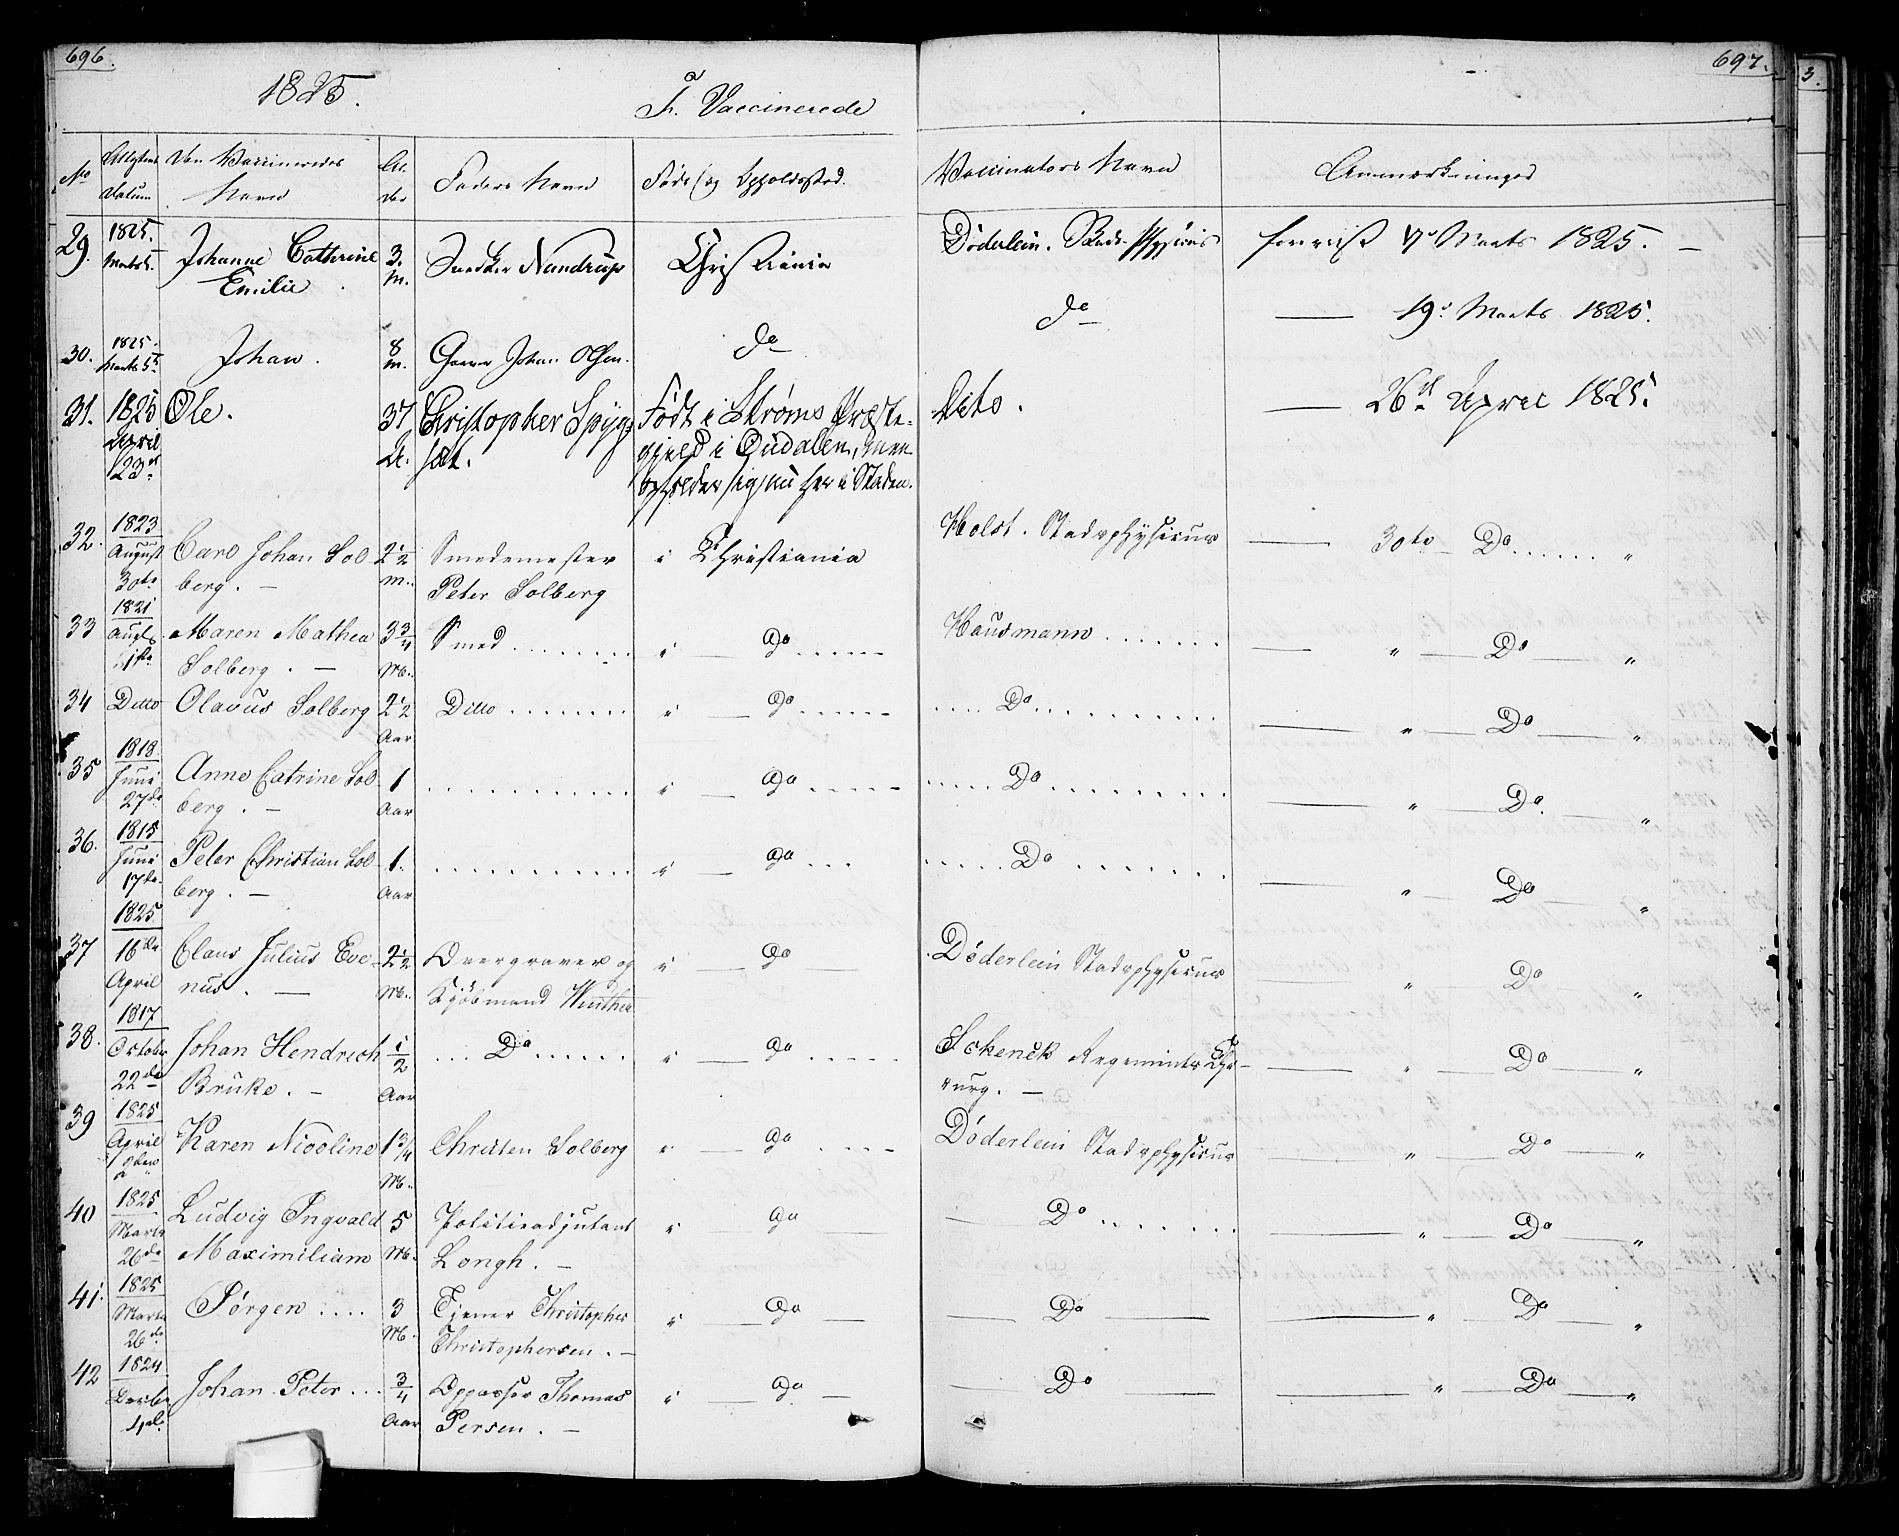 696.
1825.
F. Vaccinerede
697.
3.
No
Attestens Datum
Den Vaccineredes Navn
Al- der
Faders Navn
Føde (og Opholdssted.
Vaccinators Navn
Anmærkninger
29. 1825. Marts Johanne Cathrine 3. Snedker Nundrup Christiania Døderlein. Stads Physicus forevist Marts 1825. —
Emilie m.
30. 1825. Marts 5te Johan. 8 m. Johan Olsen. do do — 19. Marts 1825.
31. 1825 Ole. 37 Christopher Spyg- Født i Strøms Præste- Dito. — 26de April 1825.
April A. sæt. gjeld i Oudalen, men
23d opholder sig nu her i Staden.
32. 1823 August 30te Carl Johan Sol- 2½ Smedemester i Christiania Holst. Stadsphysicus — 30te — Do ...... "
berg. — m. Peter Solberg
33 1821 Augts Maren Mathea 3¾ Smed ........ i — do ...... Hausmann ...... — " — Do — "
Solberg. — M.
34 Ditto Olavus Solberg 2½ Ditto ........ i — do ...... .... Do ......... — " — Do — "
Aar
35 1818. Juni 27de Anne Catrine Sol- 1 .......... i — do ...... ..... Do ........ — " — Do. — "
berg. — Aar
36. 1815 Juni 17de. Peter Christian Sol- 1. .......... i — do ... ..... Do ....... — " — Do — "
berg. — Aar
37 1825 16de April Claus Julius Eve- 2½ Overgraver og i — do Døderlein Stadsphysicus " — Do — "
nus. — M. Kjöbmand Winther
38. 1817 October 22de Johan Hendrich ½ ... Do ...... i — do ..... Schenck Regements Chi- — " — Do — "
Brüke. — Aar rurg. —
39 1825 April Karen Nicoline 1¾ Christen Solberg i — do .... Døderlein Stadsphysicus — " — Do — "
M.
40 1825 Marts 26de Ludvig Ingvald 5 Politieadjutant i — do — — Do ...... — " — Do — "
Maximiliam M. Longh. —
41. 1825 Marts 26de Jørgen .... 3 Tjener Christopher i — do — — Do — — " — Do — "
M. Christophersen. —
42 1824. Decbr 4de. Johan Peter ... ¾ Oppasser Thomas i — do. — — Do — — " — Do — "
Aar Persen. —